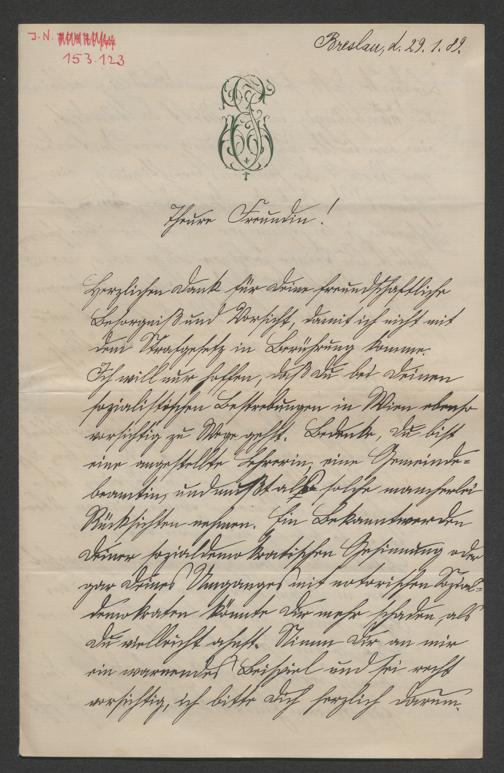 J. N.
153.123
Breslau, d. 29. 1. 89.
Theure Freundin!
Herzlichen Dank für Deine freundschaftliche
Besorgniß und Vorsicht, damit ich nicht mit
dem Strafgesetz in Berührung komme.
Ich will nur hoffen, daß Du bei Deinen
sozialistischen Bestrebungen in Wien ebenso
vorsichtig zu Wege gehst. Bedenke, Du bist
eine angestellte Lehrerin, eine Gemeinde-
beamtin, und mußt als solche mancherlei
Rücksichten nehmen. Ein Bekanntwerden
Deiner sozialdemokratischen Gesinnung oder
gar Deines Umganges mit notorischen Sozial-
demokraten könnte Dir mehr schaden als
Du vielleicht ahnst. Nimm Dir an mir
ein warnendes Beispiel und sei recht
vorsichtig, ich bitte Dich herzlich darum.